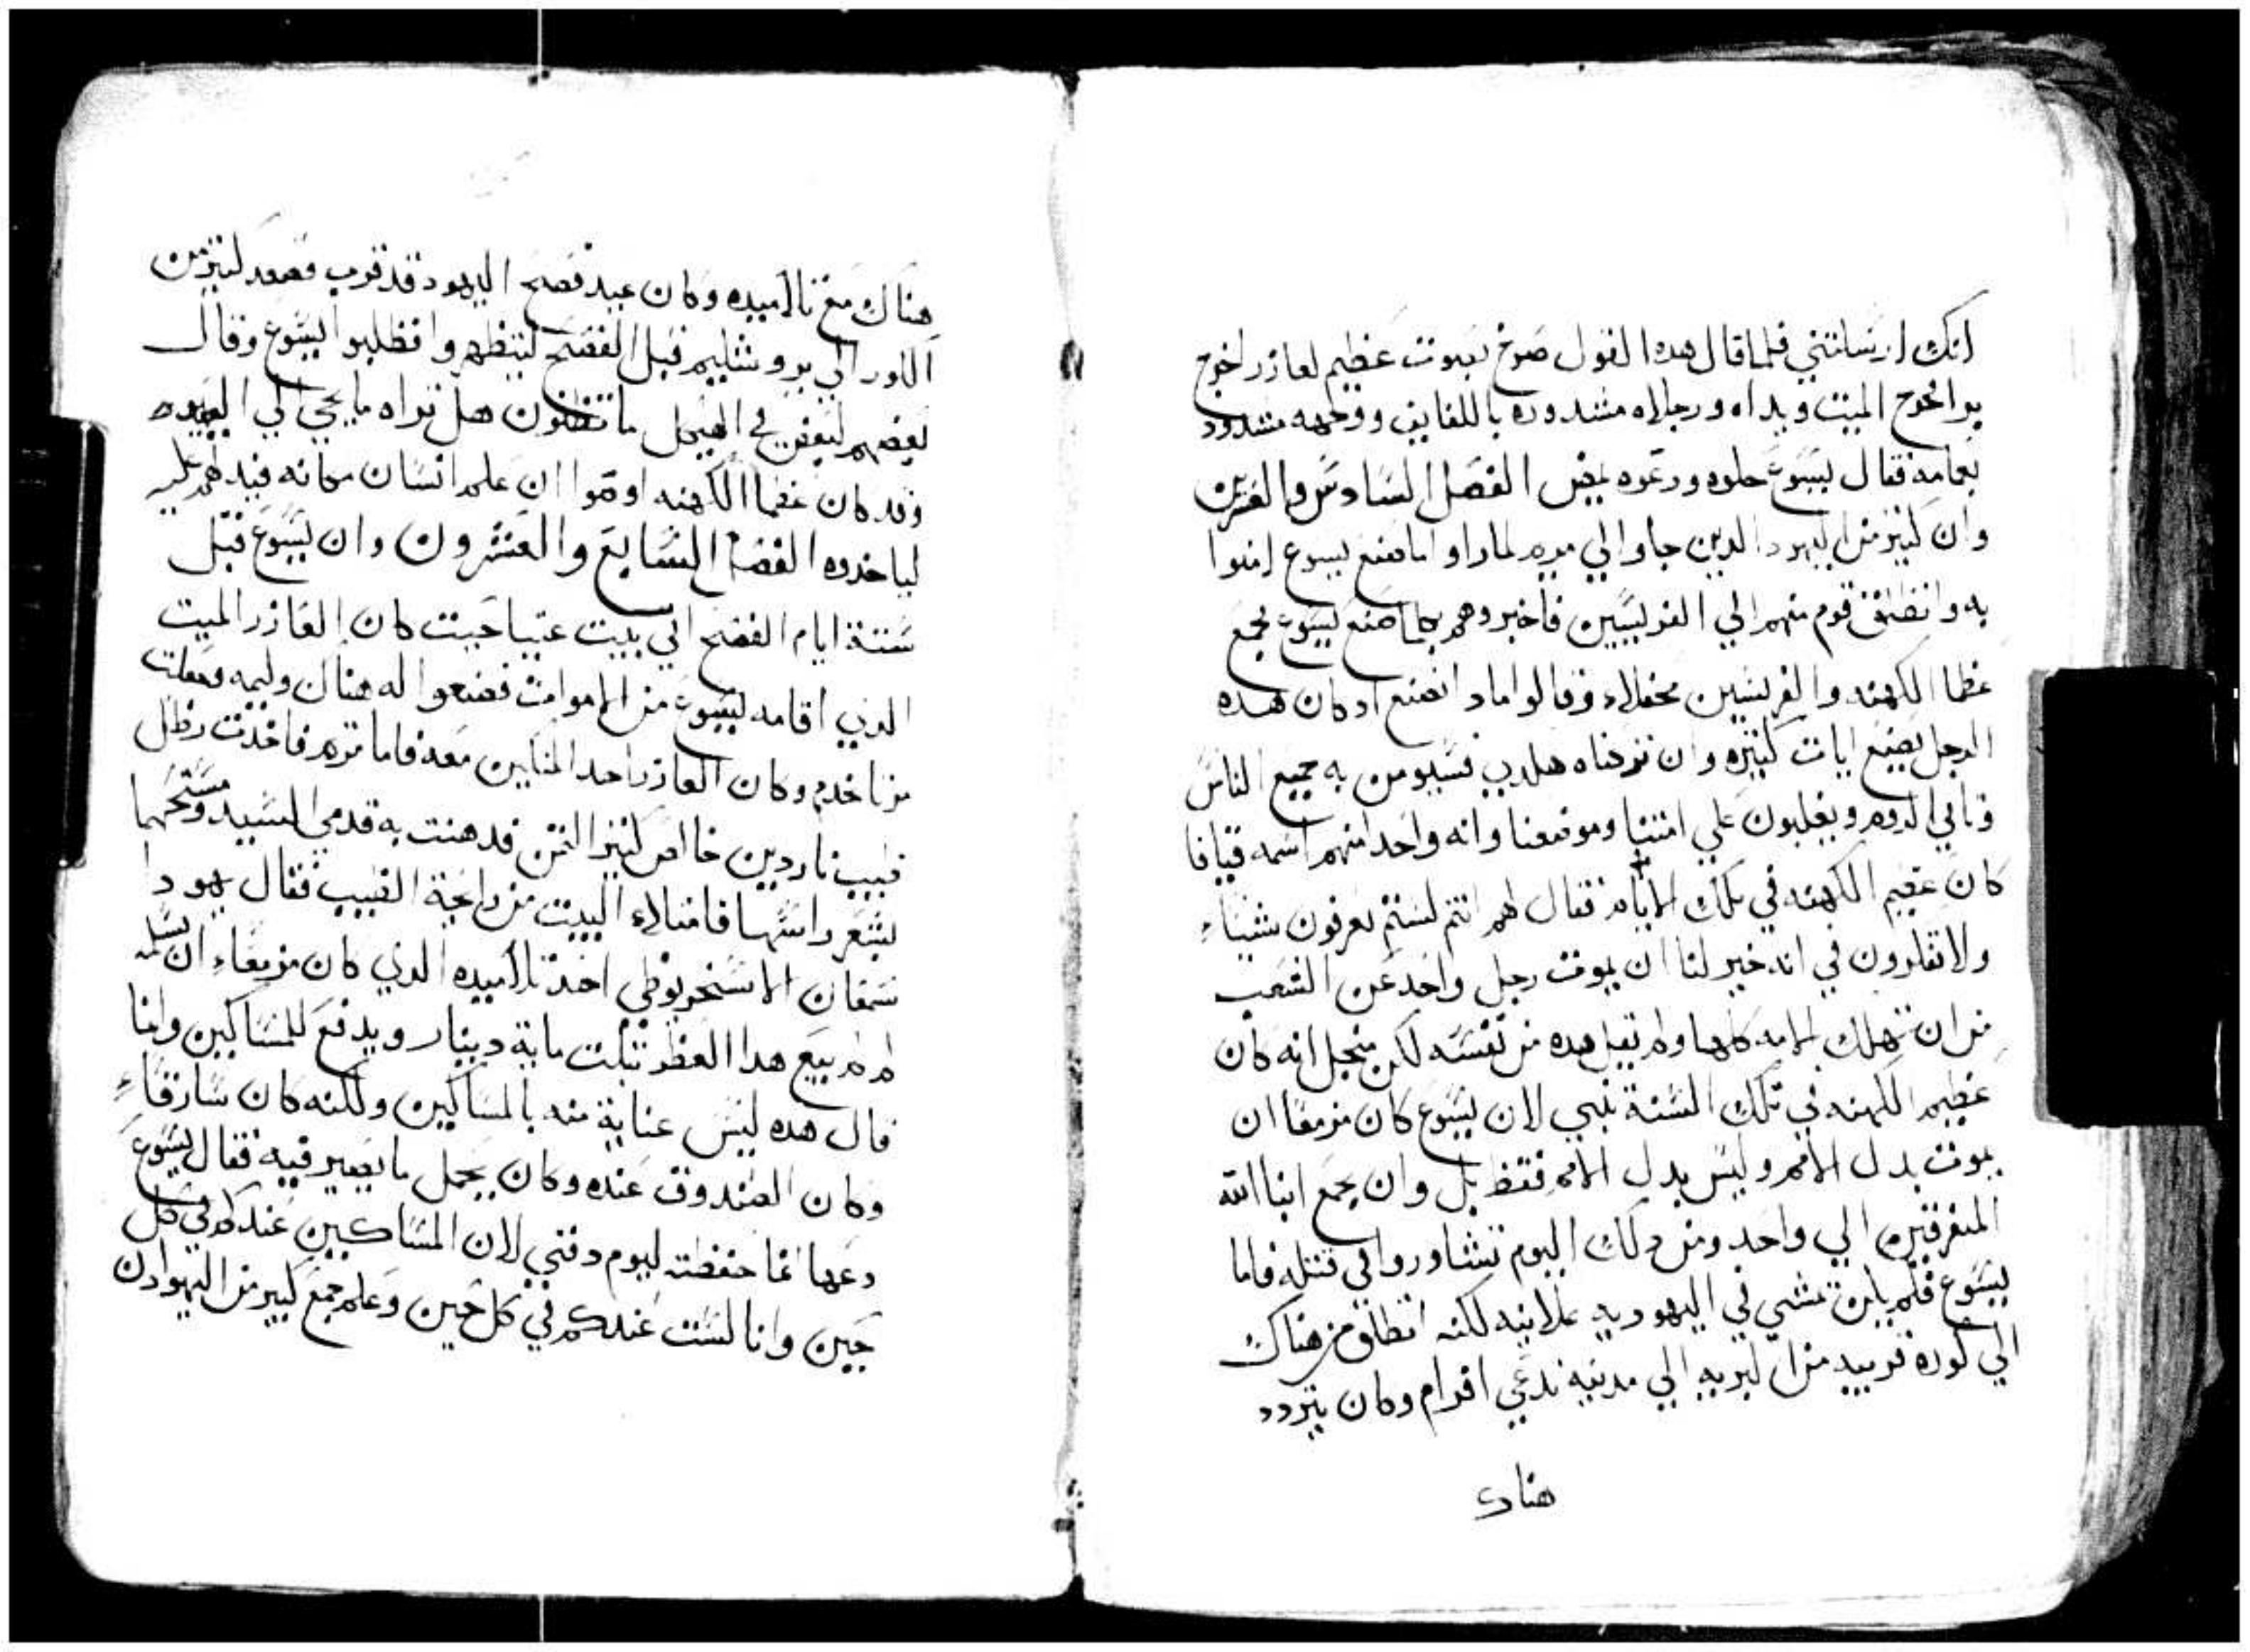 انك ارسلتني فلما قال هدا القول صرخ بصوت عظيم لعازر اخرج
برا فخرج الميت ويداه ورجلاه مشدوده باللفايف ووجهه مشدود
بعمامه فقال يسوع حلوه ودعوه يمض الفصل السادس والعشرين
وان كثير من اليهود الدين جاوا الي مريم لما راوا ما صنع يسوع امنوا
به وانطلق قوم منهم الي الفريسيين فاخبروهم بما صنع يسوع فجمع
عظما الكهنه والفريسين محفلاء وقالوا مادا نصنع اد كان هده
الرجل يصنع ايات كثيره وان تركناه هكدي فسيومن به جميع الناس
وتاتي الروم ويغلبون علي امتنا وموضعنا وانه واحدا منهم اسمه قيافا
كان عظيم الكهنه في تلك الايام فقال لهم انتم لستم تعرفون شيياء
ولا تفكرون في انه خير لنا ان يموت رجل واحد عن الشعب
من ان تهلك الامه كلها ولم يقل هده من نفسه لكن منجل انه كان
عظيم الكهنه في تلك السنة تنبي لان يسوع كان مزمعا ان
يموت بدل الامم وليس بدل الامم فقط بل وان يجمع ابنا الله
المتفرقين الي واحد ومن دلك اليوم تشاوروا في قتله فاما
يسوع فلم يكن يمشي في اليهوديه علانيه لكنه انطلق من هناك
الي كوره قريبه من البريه الي مدينه تدعي افرام وكان يتردد
هناك
هناك مع تلاميده وكان عيد فصح اليهود قد قرب فصعد كثير من
الكور الي يروشليم قبل الفصح ليتطهروا فطلبوا اليسوع وقال
بعضهم لبعض في الهيكل ما تظنون هل تراه ما يجي الي العيده
وقد كان عظما الكهنه اوصوا ان علم انسان مكانه فيدلهم عليه
لياخدوه الفصل السابع والعشرون وان يسوع قبل
ستة ايام الفصح اتي بيت عنيا حيت كان العازر الميت
الدي اقامه يسوع من الاموات فصنعوا له هناك وليمه وجعلت
مرتا تخدم وكان العازر احد المتكين معه فاما مريم فاخدت رطل
طيب ناردين خالص كثير الثمن فدهنت به قدمي السيد ومسحتهما
بشعر راسها فامتلاء البيت من رايحة الطيب فقال يهودا
سمعان الاسخريوطي احد تلاميده الدي كان مزمعاء ان يسلمه
لم لم يبع هدا العطر بثلت ماية دينار ويدفع للمساكين وانما
قال هده ليس عناية منه بالمساكين ولكنه كان سارقاء
وكان الصندوق عنده وكان يحمل ما يصير فيه فقال يسوع
دعها انما حفظته ليوم دفني لان المساكين عندكم في كل
حين وانا لست عندكم في كل حين وعلم جمع كبير من اليهود ان